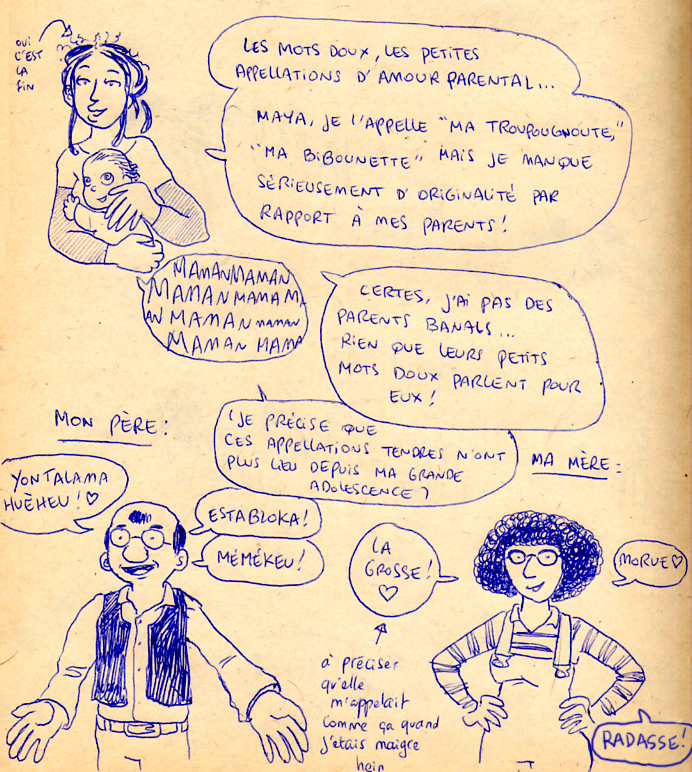 OUI
C'EST
LA
FIN
LES MOTS DOUX, LES PETITES
APPELLATIONS D'AMOUR PARENTAL...
MAYA, JE L'APPELLE "MA TROUPOUGNOUTE,"
"MA BIBOUNETTE" MAIS JE MANQUE
SÉRIEUSEMENT D'ORIGINALITÉ PAR
RAPPORT À MES PARENTS!
MAMANMAMAN
MAMANMAMAM
AN MAMAN maman
MAMAN MAMA
CERTES, J'AI PAS DES
PARENTS BANALS...
RIEN QUE LEURS PETITS
MOTS DOUX PARLENT POUR
EUX!
(JE PRÉCISE QUE
CES APPELLATIONS TENDRES N'ONT
PLUS LIEU DEPUIS MA GRANDE
ADOLESCENCE)
MON PÈRE:
YONTALAMA
HUÈHEU!♡
ESTABLOKA!
MÉMÉKEU!
MA MÈRE:
LA
GROSSE!
♡
MORUE♡
à PRÉCISER
qu'elle
m'appelait
comme ça quand
j'étais maigre
hein
RADASSE!